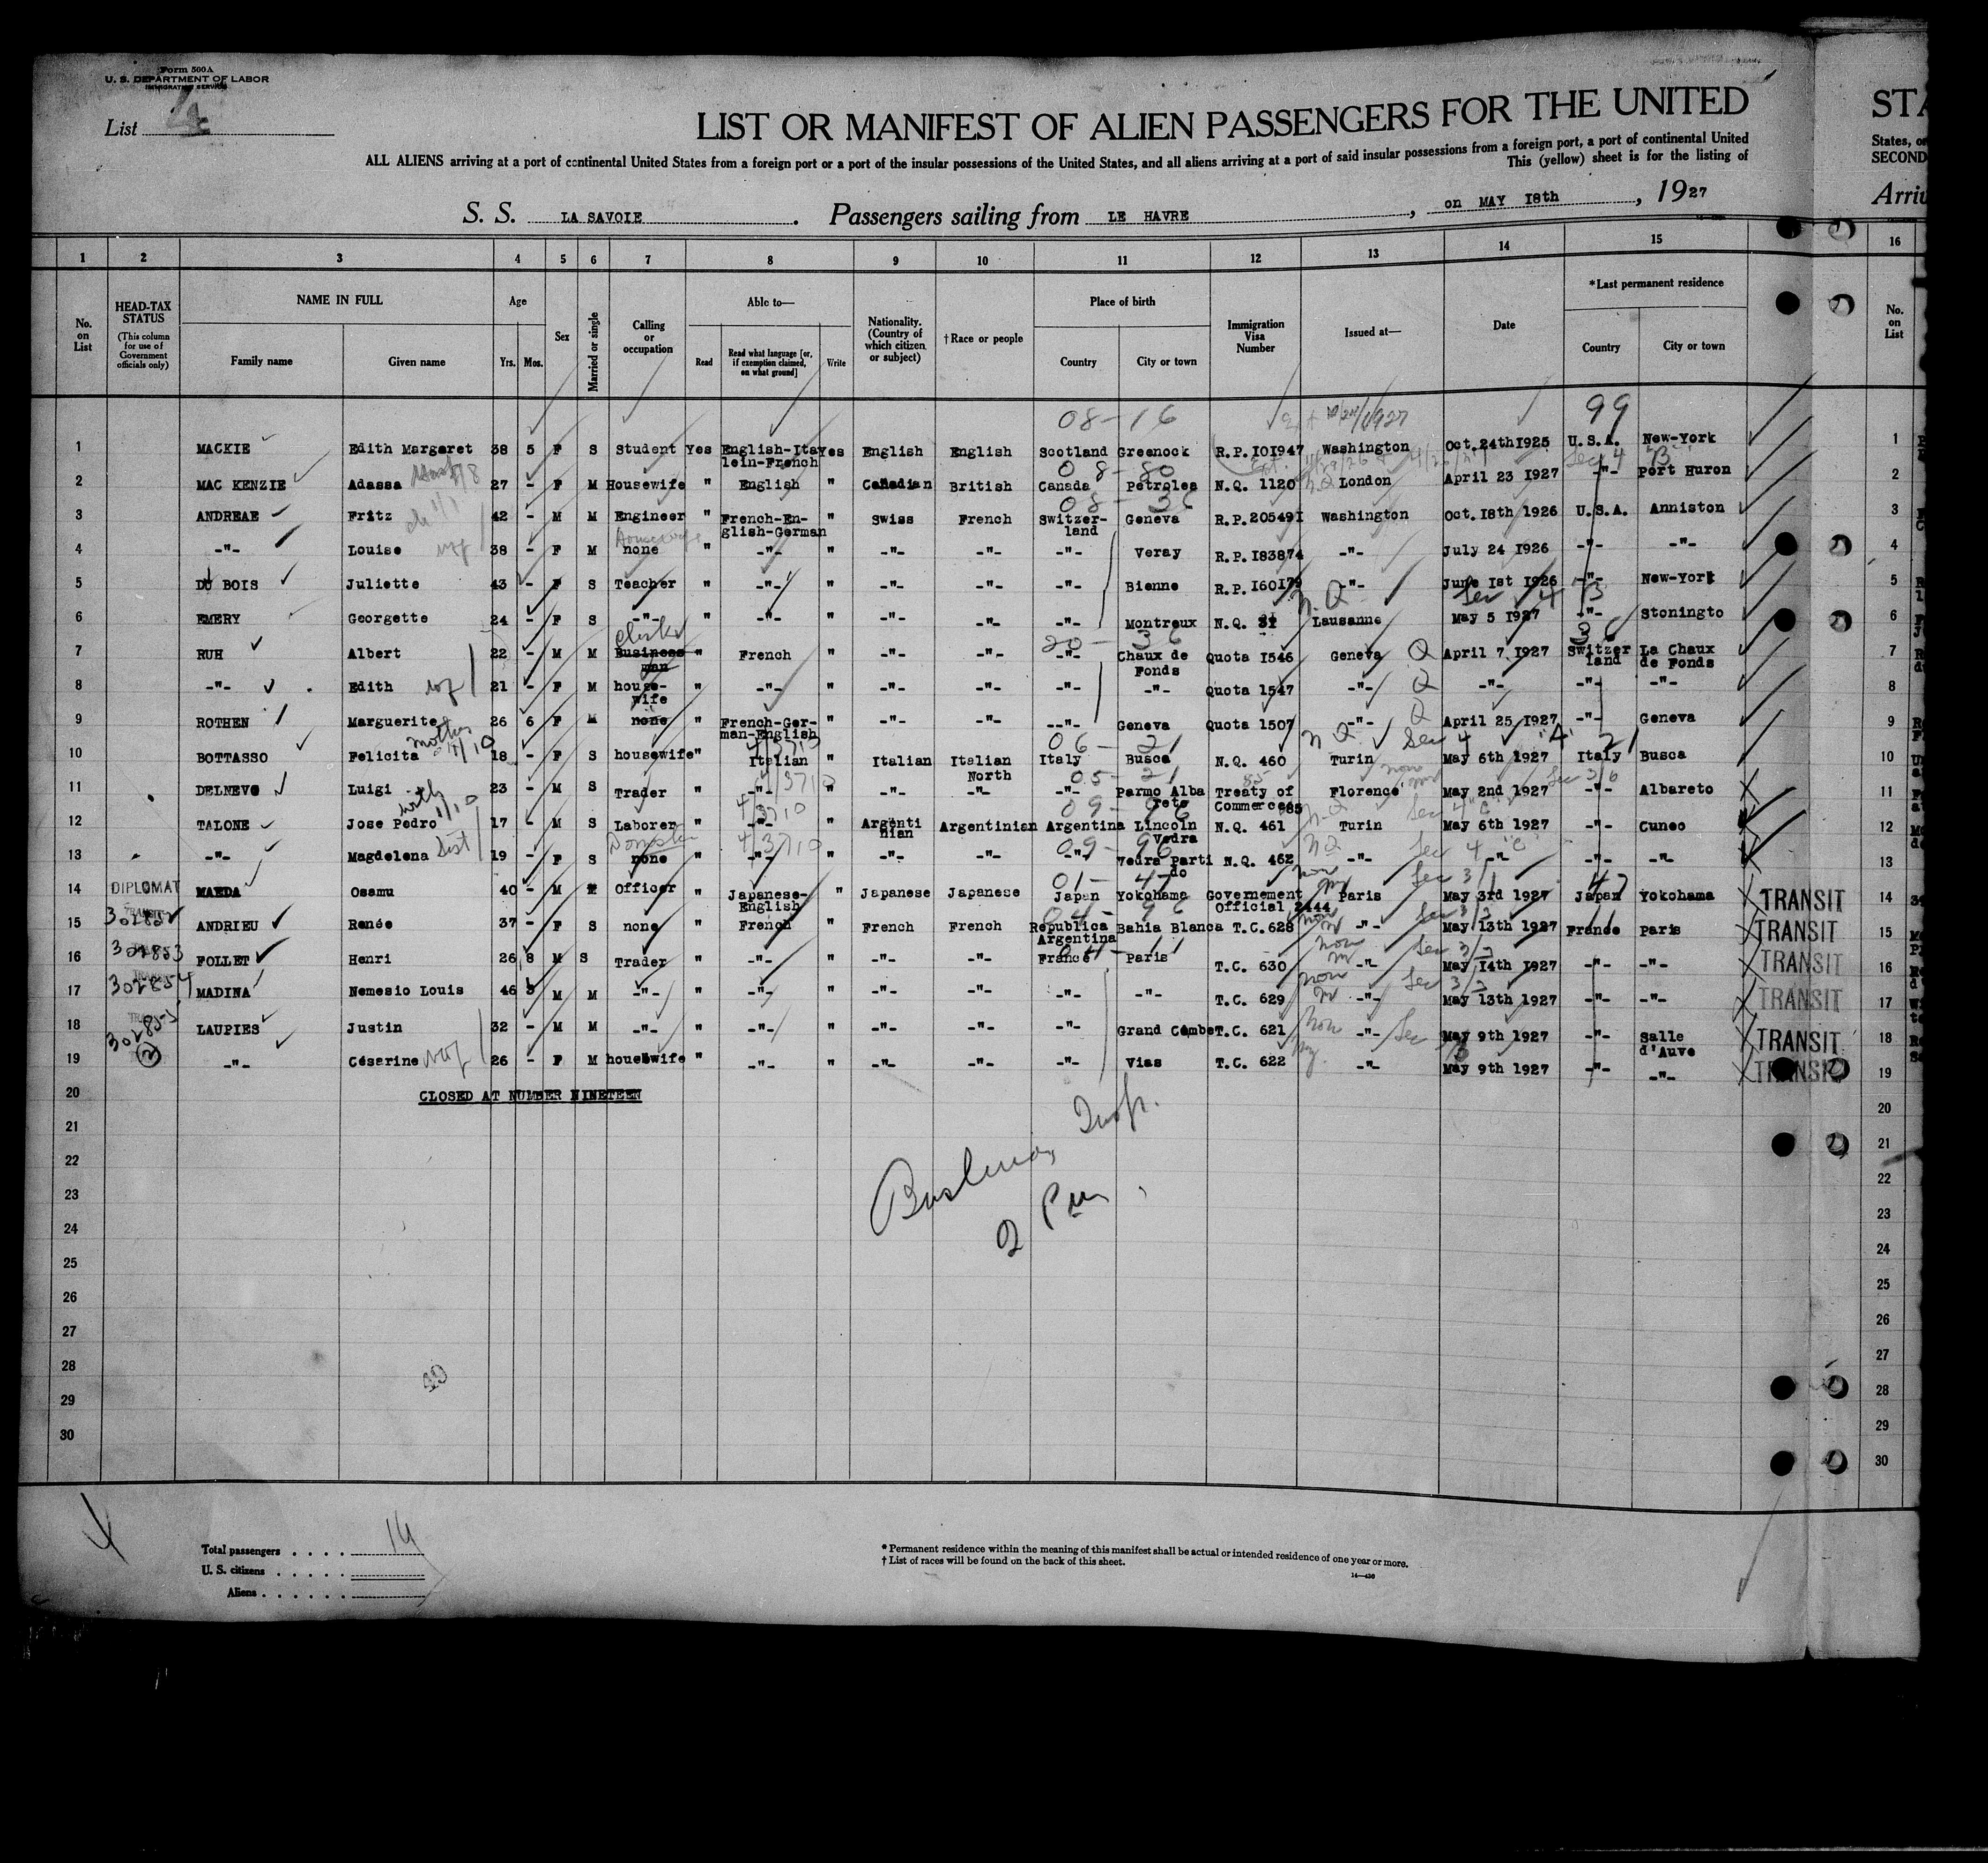 Form 500A
U. S. DEPARTMENT OF LABOR
IMMIGRATION SERVICE
List 4
LIST OR MANIFEST OF ALIEN PASSENGERS FOR THE UNITED
STA
ALL ALIENS arriving at a port of continental United States from a foreign port or a port of the insular possessions of the United States, and all aliens arriving at a port of said insular possessions from a foreign port, a port of continental United
States, or
This (yellow) sheet is for the listing of
SECOND
S. S. LA SAVOIE. Passengers sailing from LE HAVRE, on MAY 18th, 1927
Arriv
1 2 3 4 5 6 7 8 9 10 11 12 13 14 15 16
No. on List
HEAD-TAX STATUS (This column for use of Government officials only)
NAME IN FULL
Family name
Given name
Age
Yrs. Mos.
Sex
Married or single
Calling or occupation
Able to—
Read
Read what language [or, if exemption claimed, on what ground]
Write
Nationality. (Country of which citizen or subject)
†Race or people
Place of birth
Country
City or town
Immigration Visa Number
Issued at—
Date
*Last permanent residence
Country
City or town
No. on List
08-16 99
1 MACKIE Edith Margaret 38 5 F S Student Yes English-Ita lein-French Yes English English Scotland Greenock R.P. 101947 Washington Oct. 24th 1925 U.S.A. New-York 1
08-80 Sec 4 B
2 MAC KENZIE Adassa 27 - F M Housewife " English " Canadian British Canada Petrolea N.Q. 1120 London April 23 1927 -"- Port Huron 2
08-36
3 ANDREAE Fritz 42 - M M Engineer " French-En- glish-German " Swiss French Switzer- land Geneva R.P. 205491 Washington Oct. 18th 1926 U.S.A. Anniston 3
Housewife
4 -"- Louise wf 38 - F M none " -"- " -"- -"- -"- Veray R.P. 183874 -"- July 24 1926 -"- -"- 4
5 DU BOIS Juliette 43 - F S Teacher " -"- " -"- -"- -"- Bienne R.P. 160179 -"- June 1st 1926 -"- New-York 5
N.Q. Sec 4 B
6 EMERY Georgette 24 - F S -"- " -"- " -"- -"- -"- Montreux N.Q. 31 Lausanne May 5 1927 -"- Stonington 6
Clerk 20-36 36
7 RUH Albert 22 - M M Business man " French " -"- -"- -"- Chaux de Fonds Quota 1546 Geneva Q April 7 1927 Switzer land La Chaux de Fonds 7
8 -"- Edith wf 21 - F M house- wife " -"- " -"- -"- -"- -"- Quota 1547 -"- Q -"- -"- -"- 8
9 ROTHEN Marguerite 26 6 F M none " French-Ger- man-English " -"- -"- -"- Geneva Quota 1507 -"- Q April 25 1927 -"- Geneva 9
mother 06-21 N.Q. Sec 4 "A" 21
10 BOTTASSO Felicita 18 - F S housewife " Italian " Italian Italian North Italy Busca N.Q. 460 Turin May 6th 1927 Italy Busca 10
05-21 Sec 3/6
11 DELNEVO Luigi 23 - M S Trader " -"- " -"- -"- -"- Parmo Alba reto Treaty of Commerce 85 Florence May 2nd 1927 -"- Albareto 11
09-96 N.Q. Sec 4 "C"
12 TALONE Jose Pedro 17 - M S Laborer " -"- " Argenti nian Argentinian Argentina Lincoln Vedra N.Q. 461 Turin May 6th 1927 -"- Cuneo 12
Domestic 09-96 N.Q. Sec 4 "C"
13 -"- Magdelena Sist 19 - F S none " -"- " -"- -"- -"- Vedra Parti do N.Q. 462 -"- -"- -"- -"- 13
01-47 non im Sec 3/1 47
14 DIPLOMAT MAEDA Osamu 40 - M M Officer " Japanese- English " Japanese Japanese Japan Yokohama Governement Official 2444 Paris May 3rd 1927 Japan Yokohama TRANSIT 14
15 302852 ANDRIEU Renée 37 - F S none " French " French French Republica Argentina Bahia Blanca T.C. 628 -"- May 13th 1927 France Paris TRANSIT 15
16 302853 FOLLET Henri 26 8 M S Trader " -"- " -"- -"- France Paris T.C. 630 -"- May 14th 1927 -"- -"- TRANSIT 16
17 302854 MADINA Nemesio Louis 46 3 M M -"- " -"- " -"- -"- -"- -"- T.C. 629 -"- May 13th 1927 -"- -"- TRANSIT 17
18 302855 LAUPIES Justin 32 - M M -"- " -"- " -"- -"- -"- Grand Combe T.C. 621 -"- May 9th 1927 -"- Salle d'Auve TRANSIT 18
19 (2) -"- Césarine wf 26 - F M housewife " -"- " -"- -"- -"- Vias T.C. 622 -"- May 9th 1927 -"- -"- TRANSIT 19
20 CLOSED AT NUMBER NINETEEN 20
21 21
22 22
23 23
24 24
25 25
26 26
27 27
28 28
29 29
30 30
Insp.
2 Pm
Total passengers
U. S. citizens
Aliens
* Permanent residence within the meaning of this manifest shall be actual or intended residence of one year or more.
† List of races will be found on the back of this sheet.
14—430